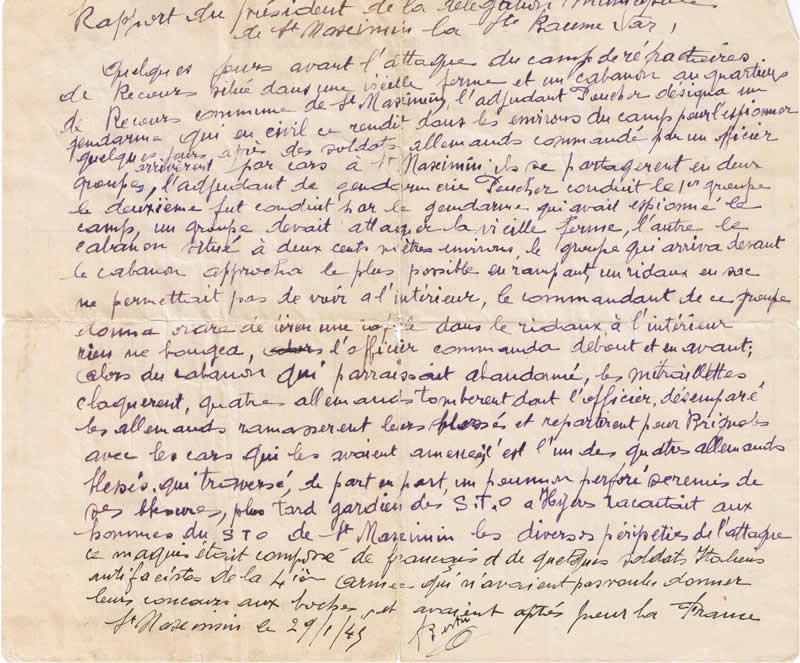 Rapport du président de la délégation municipale
de St Maximin la Ste Baume Var,
Quelques jours avant l'attaque du camp de réfractaires
de Recours située dans une vieille ferme et un cabanon au quartiers
de Recours commune de St Maximin, l'adjudant Poucher désigna un
gendarme qui en civil ce rendit dans les environs du camp pour l'espionner
quelques jours après des soldats allemands commandé par un officier
arrivèrent par cars à St Maximin ils se partagerent en deux
groupes, l'adjudant de gendarmerie Poucher conduit le 1er groupe
le deuxième fut conduit par le gendarme qui avait espionné le
camp, un groupe devait attaquer la vieille ferme, l'autre le
cabanon situé à deux cents mètres environs, le groupe qui arriva devant
le cabanon approcha le plus possible en rampant, un ridaux en sac
ne permettait pas de voir a l'intérieur, le commandant de ce groupe
donna ordre de tirer une dans le ridaux, à l'intérieur
rien ne bougea, l'officier commanda debout et en avant;
alors du cabanon qui parraissait abandonné, les mitraillettes
claquerent, quatres allemands tomberent dont l'officier, désemparé
les allemands ramasserent leurs blessés et repartirent pour Brignoles
avec les cars qui les avaient amenés, c'est l'un des quatres allemands
blessés, qui traversé, de part en part, un poumon perforé se remis de
ses blessures, plus tard gardien des S.T.O a Hyères racontait aux
hommes du STO de St Maximin les diverses péripéties de l'attaque
ce maquis était composé de français et de quelques soldats Italiens
antifacistes de la 4ièm armée qui n'avaient pas voulu donner
leurs concours aux boches, et avaient optés pour la France
St Maximin le 29/1/45